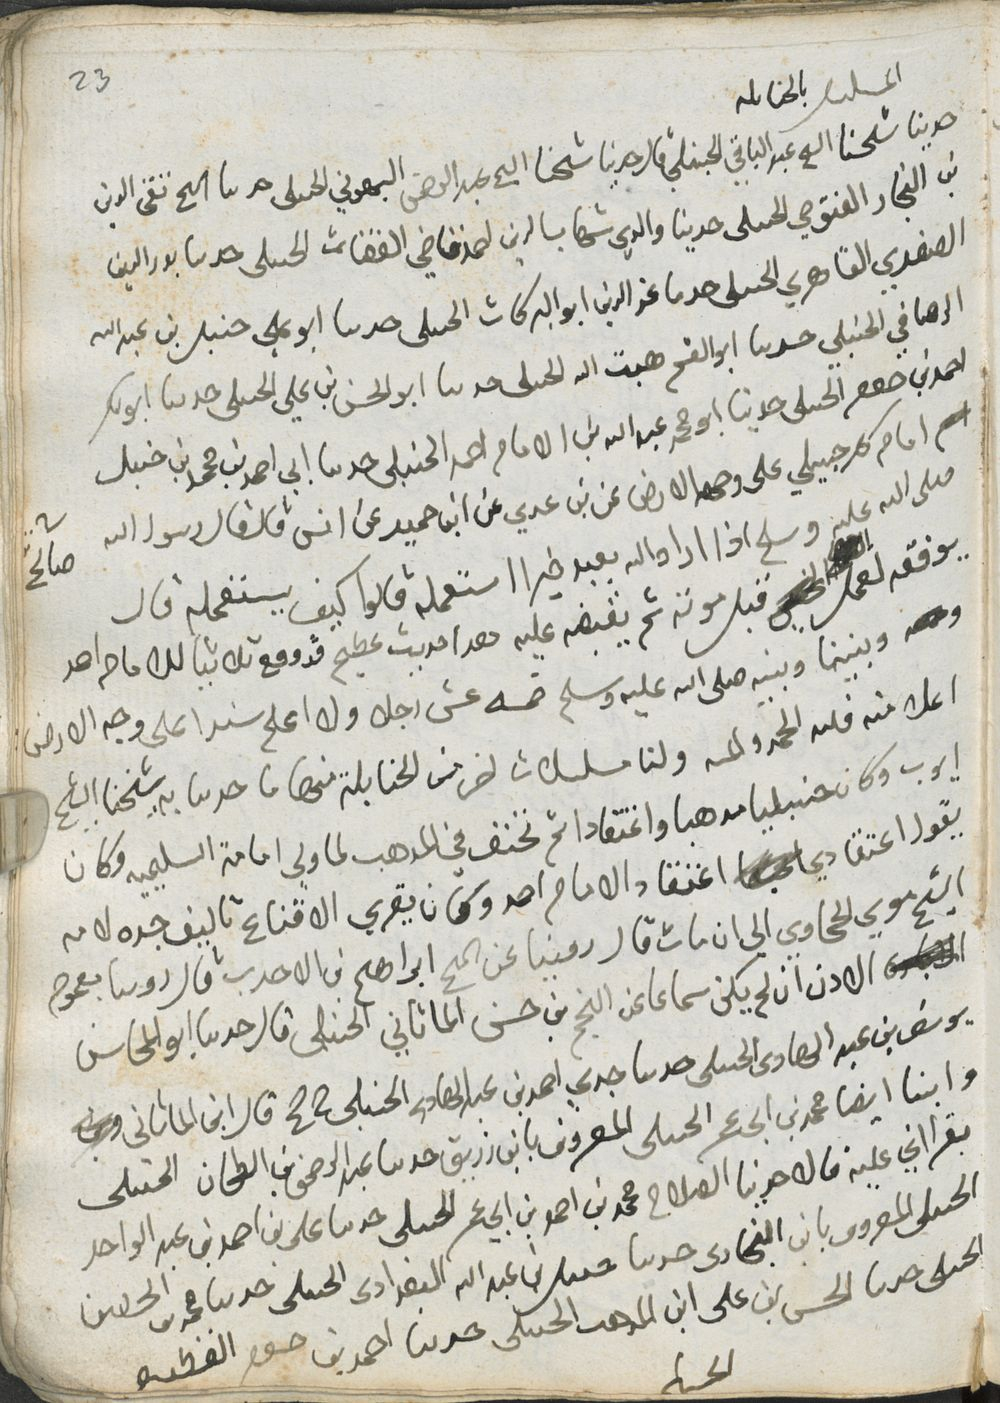 23
المسلسل بالحنابله
حدثنا شيخنا الشيخ عبد الباقي الحنبلي قال حدثنا شيخنا الشيخ عبد الرحمن البهوتي الحنبلي حدثنا الشيخ تقي الدين
بن النجار الفتوحي الحنبلي حدثنا والدي شهاب الدين احمد قاضي القضات الحنبلي حدثنا بدر الدين
الصفدي القاهري الحنبلي حدثنا عز الدين ابو البركات الحنبلي حدثنا ابو علي حنبل بن عبد الله
الرصافي الحنبلي حدثنا ابو القسم هبت الله الحنبلي حدثنا ابو الحسن بن علي الحنبلي حدثنا ابو بكر
احمد بن جعفر الحنبلي حدثنا ابو محمد عبد الله بن الامام احمد الحنبلي حدثنا ابي احمد بن محمد بن حنبل
امام كل حنبلي على وجه الارض عن بن عدي عن ابن حميد عن انس قال قال رسول الله
صلى الله عليه وسلم اذا اراد الله بعبد خيرا استعمله قالوا كيف يستعمله قال
يوفقه لعمل صالح قبل موته ثم يقبضه عليه هذا حديث عظيم قد وقع ثلاثيا للامام احمد
وبيننا وبينه صلى الله عليه وسلم خمسه عشر رجلا ولا اعلم سندا على وجه الارض
اعلا منه فلله الحمد والمنه ولنا مسلسلات اخر من الحنابلة منها ما حدثنا به شيخنا الشيخ
ايوب وكان حنبليا مذهبا واعتقادا ثم تحنف في المذهب لما ولي امامة السليميه وكان
يقول اعتقادي اعتقاد الامام احمد وكان يقري الاقناع تاليف جده لامه
الشيخ موسي الحجاوي الي ان مات قال روينا عن الشيخ ابراهيم بن الاحدب قال روينا بعموم
الاذن ان لم يكن سماعا عن النجم بن حسن الماتاني الحنبلي قال حدثنا ابو المحاسن
يوسف بن عبد الهادي الحنبلي حدثنا جدي احمد بن عبد الهادي الحنبلي ح قال ابن الماتاني
وانبنا ايضا محمد بن ابي عمر الحنبلي المعروف بابن زريق حدثنا عبد الرحمن بن الطحان الحنبلي
بقراتي عليه قالا حدثنا الصلاح محمد بن احمد بن ابي عمر الحنبلي حدثنا علي بن احمد بن عبد الواحد
الحنبلي المعروف بابن البخاري حدثنا حنبل بن عبد الله البغدادي الحنبلي حدثنا محمد بن الحصين
الحنبلي حدثنا الحسن بن علي ابن المذهب الحنبلي حدثنا احمد بن جعفر القطيعي
صالح